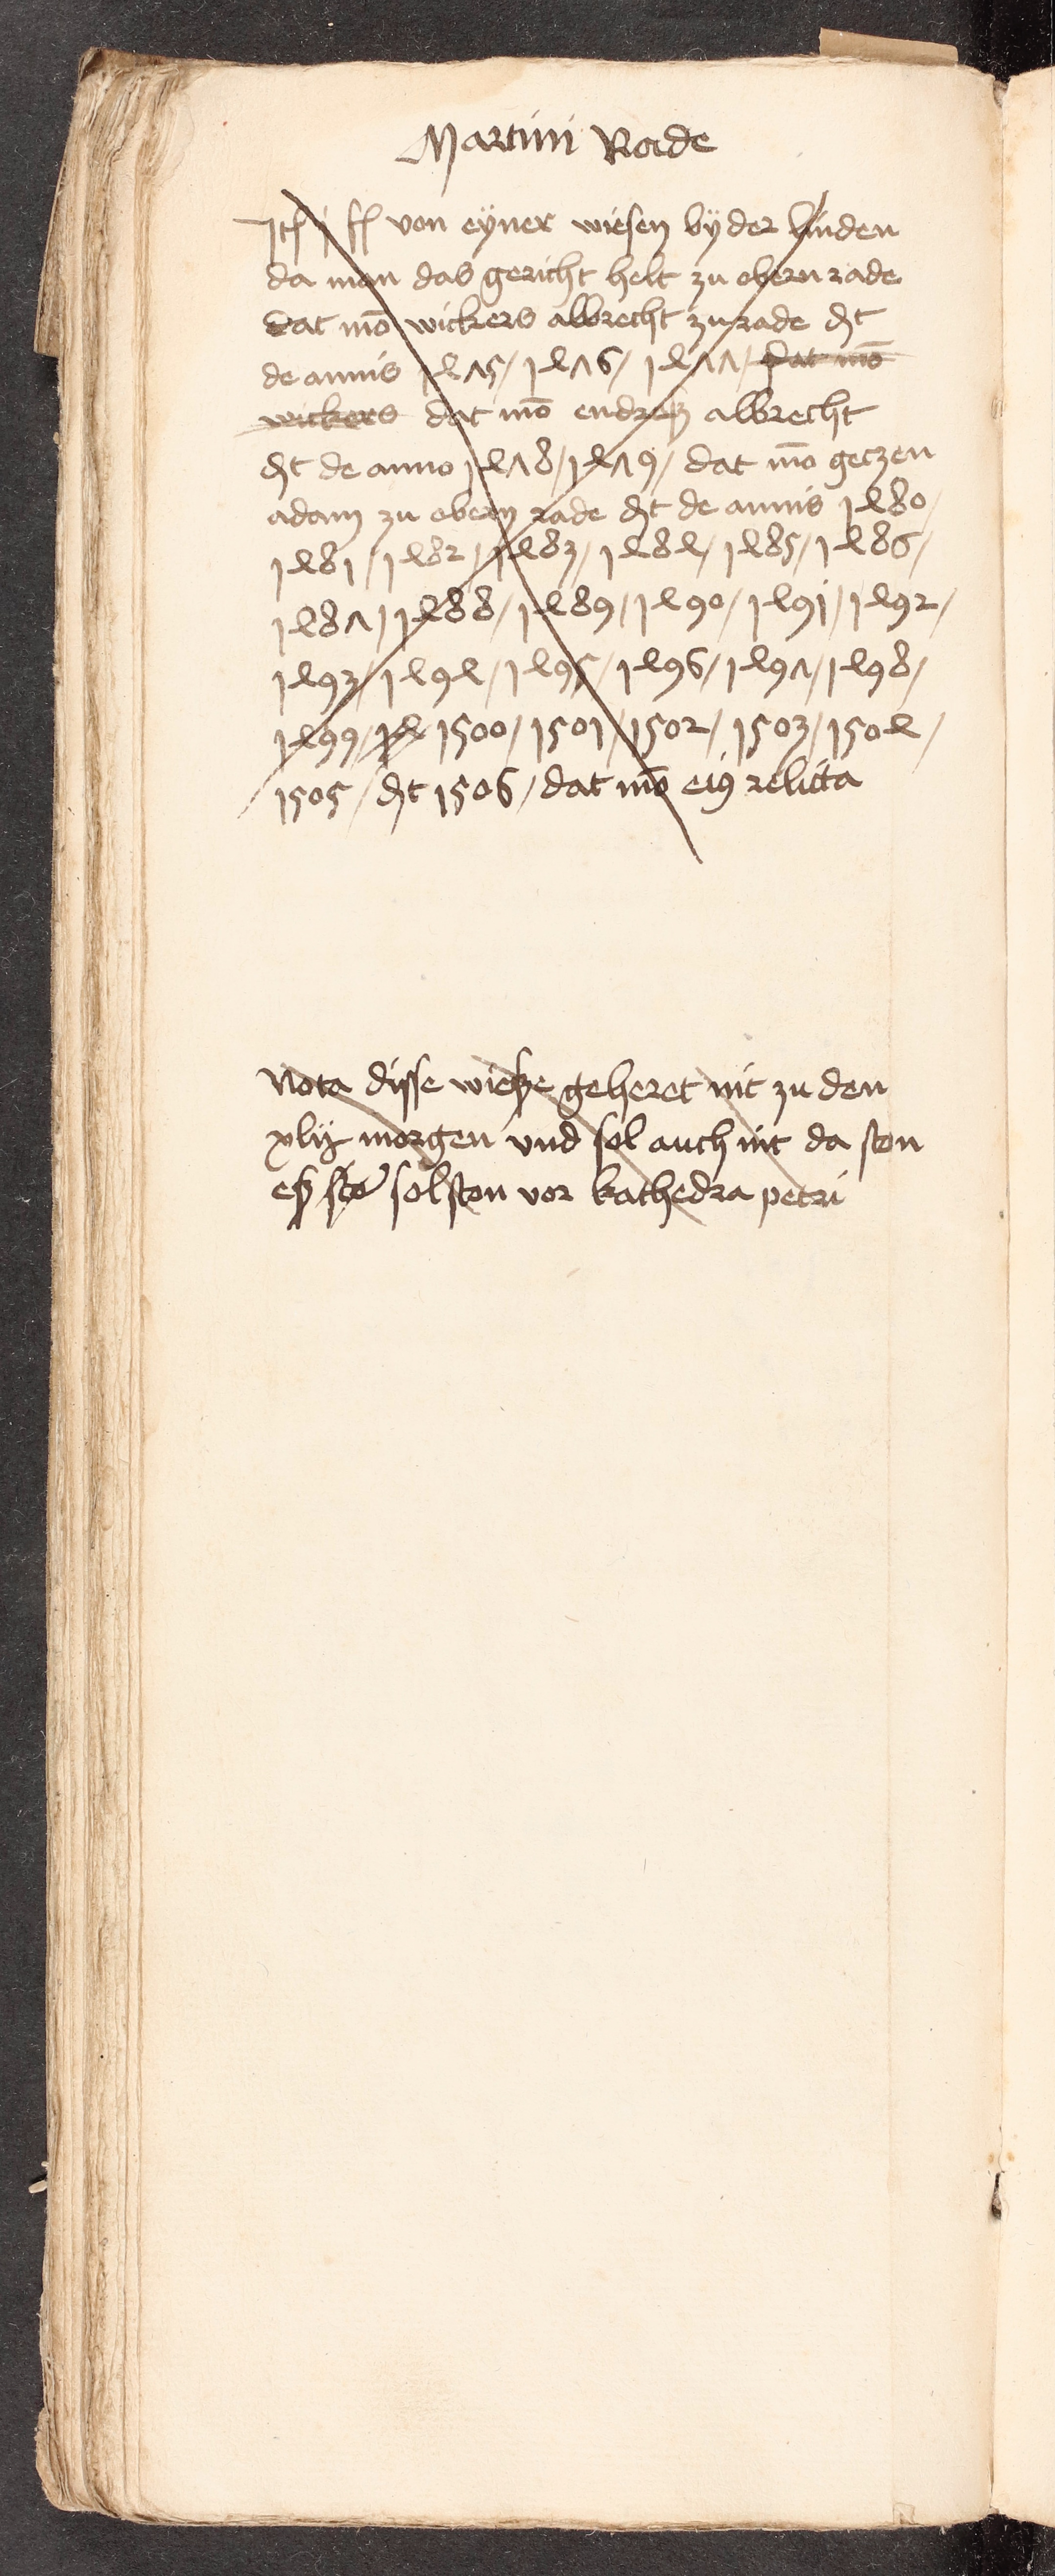 Martini Rode
Jtem j ß von eyner wiesen by der linden
da man das gericht helt zu obern rade
dat mo wickers albrecht zu rade dt
de annis 1475 / 1476 / 1477 / dat mo
wickers dat mo endreß albrecht
dt de anno 1478 / 1479 / dat mo getzen
adam zu obern rade dt de annis 1480 /
1481 / 1482 / 1483 / 1484 / 1485 / 1486 /
1487 / 1488 / 1489 / 1490 / 1491 / 1492 /
1493 / 1494 / 1495 / 1496 / 1497 / 1498 /
1499 / 14 1500 / 1501 / 1502 / 1503 / 1504 /
1505 / dt 1506 / dat mo ei9 relicta
Nota disse wieße geheret nit zu den
xlij morgen vnd sol auch nit da sten
eß solsten vor kathedra petri